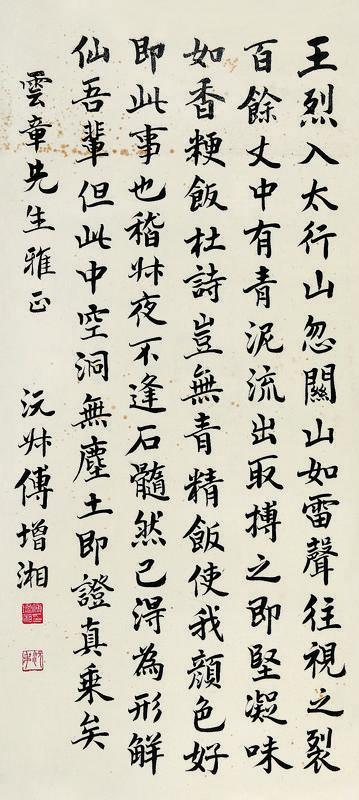 王烈入太行山忽關山如雷聲往視之裂
百餘丈中有青泥流出取摶之即堅凝味
如香粳飯杜詩豈無青精飯使我顏色好
即此事也稽叔夜不逢石髓然已得為形觧
仙吾輩但此中空洞無塵土即證真乘矣
雲章先生雅正 沅叔傅增湘